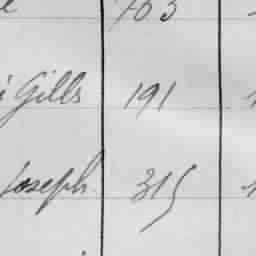 703
Gills 191
Joseph 315